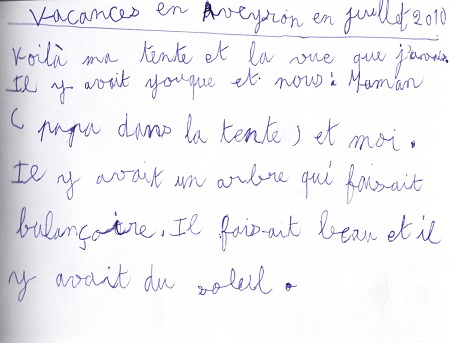 Vacances en Aveyron en juillet 2010
Voilà ma tente et la vue que j'avais.
Il y avait youque et nous : Maman
( papa dans la tente ) et moi.
Il y avait un arbre qui faisait
balançoire. Il faisait beau et il
y avait du soleil.